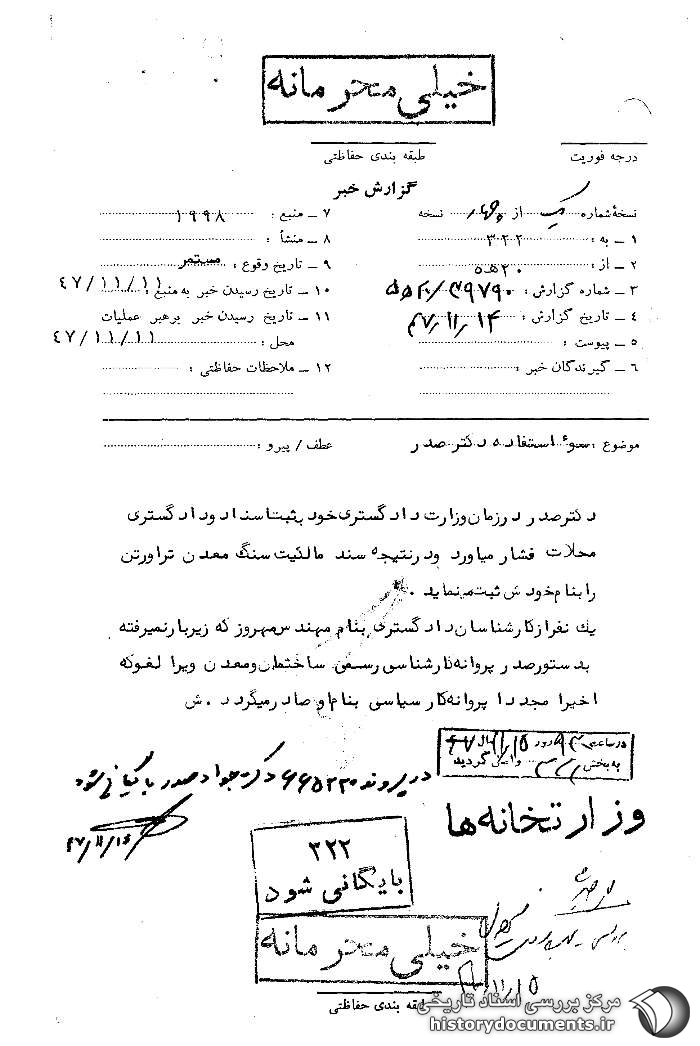 خیلی محرمانه
درجه فوریت
طبقه بندی حفاظتی
گزارش خبر
نسخهٔ شماره یک از چهار نسخه
۱ ـ به : ۳۰۲۲
۲ ـ از : ۲۰ ه ۵
۳ ـ شماره گزارش :
۴ ـ تاریخ گزارش : ۴۷/۱۱/۱۴
۵ ـ پیوست :
۶ ـ گیرندگان خبر :
۷ ـ منبع : ۱۹۹۸
۸ ـ منشأ :
۹ ـ تاریخ وقوع : مستمر
۱۰ ـ تاریخ رسیدن خبر به منبع : ۴۷/۱۱/۱۱
۱۱ ـ تاریخ رسیدن خبر برهبر عملیات
محل : ۴۷/۱۱/۱۱
۱۲ ـ ملاحظات حفاظتی :
موضوع : سوءاستفاده دکتر صدر
عطف / پیرو :
دکتر صدر در زمان وزارت دادگستری خود بثبت اسناد و دادگستری
محلات فشار میاورد ودرنتیجه سند مالکیت سنگ معدن تراورتن
را بنام خودش ثبت مینماید .
یك نفر از کارشناسان دادگستری بنام مهندس مهروز که زیربار نمیرفته
بدستور صدر پروانه کارشناسی رسمی ساختمان ومعدن ویرا لغو که
اخیرا مجددا پروانه کار سیاسی بنام او صادر میگردد . ش
در ساعت روز
به بخش ۳۲۲ واصل گردید
در پرونده دکتر جواد صدر بایگانی شود
۴۷/۱۱/۱۶
وزارتخانه ها
۳۲۲
بایگانی شود
خیلی محرمانه
طبقه بندی حفاظتی
مرکز بررسی اسناد تاریخی
historydocuments.ir